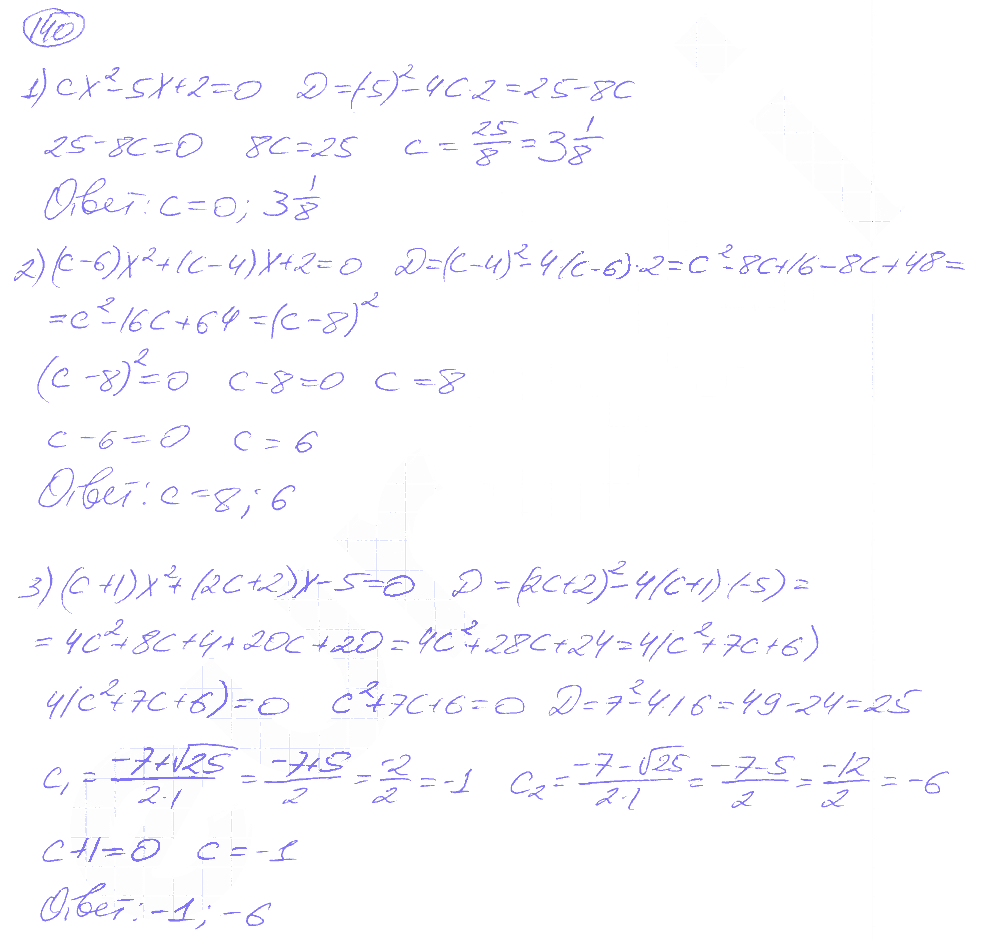 140
1) cx²-5x+2=0 D=(-5)²-4c·2=25-8c
25-8c=0 8c=25 c=25/8=3 1/8
Ответ: c=0; 3 1/8
2) (c-6)x²+(c-4)x+2=0 D=(c-4)²-4(c-6)·2=c²-8c+16-8c+48=
=c²-16c+64=(c-8)²
(c-8)²=0 c-8=0 c=8
c-6=0 c=6
Ответ: c=8; 6
3) (c+1)x²+(2c+2)x-5=0 D=(2c+2)²-4(c+1)·(-5)=
=4c²+8c+4+20c+20=4c²+28c+24=4(c²+7c+6)
4(c²+7c+6)=0 c²+7c+6=0 D=7²-4·6=49-24=25
c₁=(-7+√25)/(2·1)=(-7+5)/2=-2/2=-1 c₂=(-7-√25)/(2·1)=(-7-5)/2=-12/2=-6
c+1=0 c=-1
Ответ: -1; -6